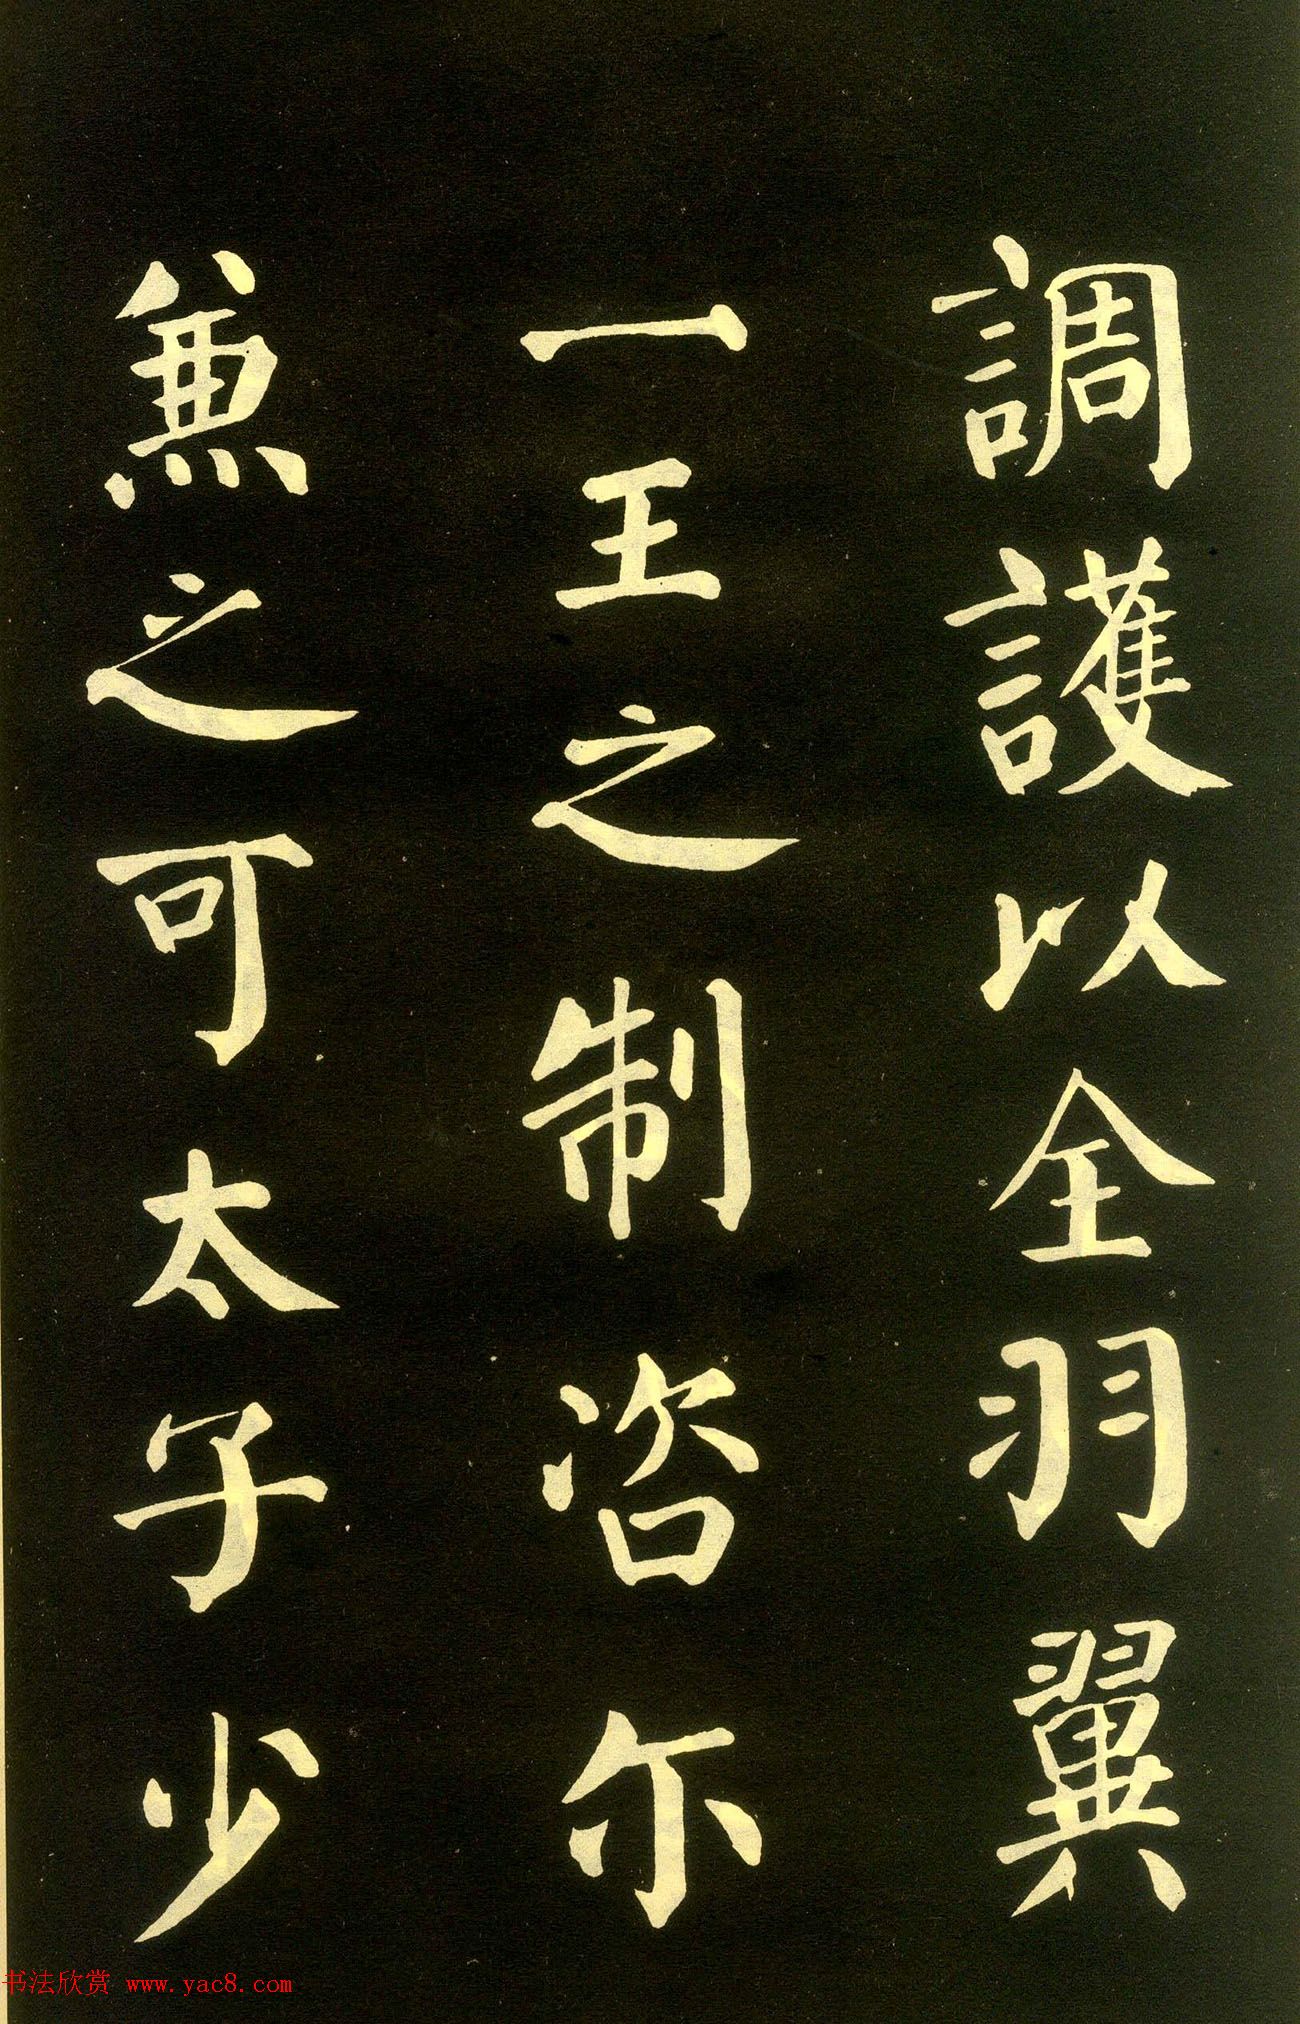 調護以全羽翼
一王之制咨尔
兼之可太子少
书法欣赏 www.yac8.com